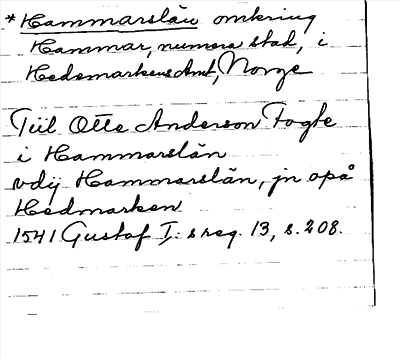 * Hammarslän omkring
Hammar, numera stad, i
Hedemarkens Amt, Norge
Till Otte Anderson Fogte
i Hammarslän
vdij Hammarslän, jn opå
Hedmarken
1541 Gustaf I: s reg. 13, s. 208.